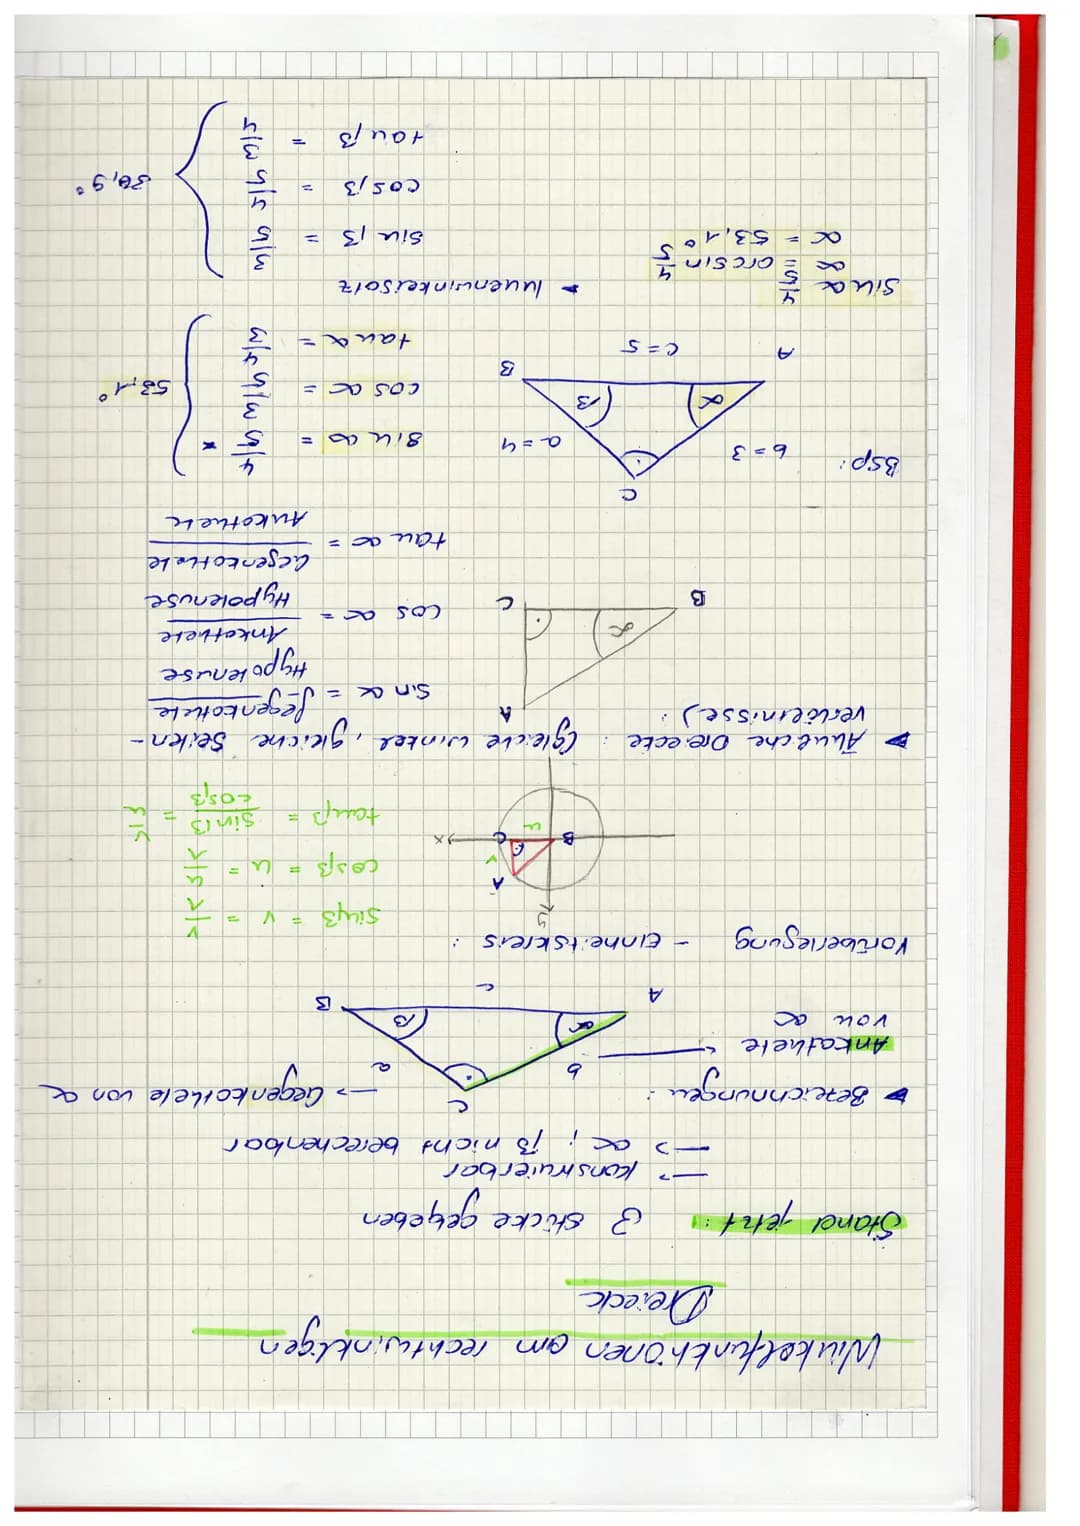 Winkelfunktionen am rechtwinkligen
Dreieck
Stand jetzt: 3 Stücke gegeben
-> konstruierbar
-> α; β nicht berechenbar
Bezeichnungen:
C
b
a
-> Gegenkathete von α
Ankathete
von α
α
β
A
c
B
Vorüberlegung - Einheitskreis:
y
x
A
B
C
u
v
sinβ = v = v/1
cosβ = u = u/1
tanβ = sinβ/cosβ = v/u
Ähnliche Dreiecke: (gleiche Winkel, gleiche Seiten-
verhältnisse):
A
B
C
α
sin α = Gegenkathete/Hypotenuse
cos α = Ankathete/Hypotenuse
tan α = Gegenkathete/Ankathete
BSP:
C
b=3
a=4
α
β
A
c=5
B
sin α = 4/5 *
cos α = 3/5
tan α = 4/3
53,1°
sin α 4/5
α = arcsin 4/5
α = 53,1°
* Innenwinkelsatz
sin β = 3/5
cos β = 4/5
tan β = 3/4
36,9°